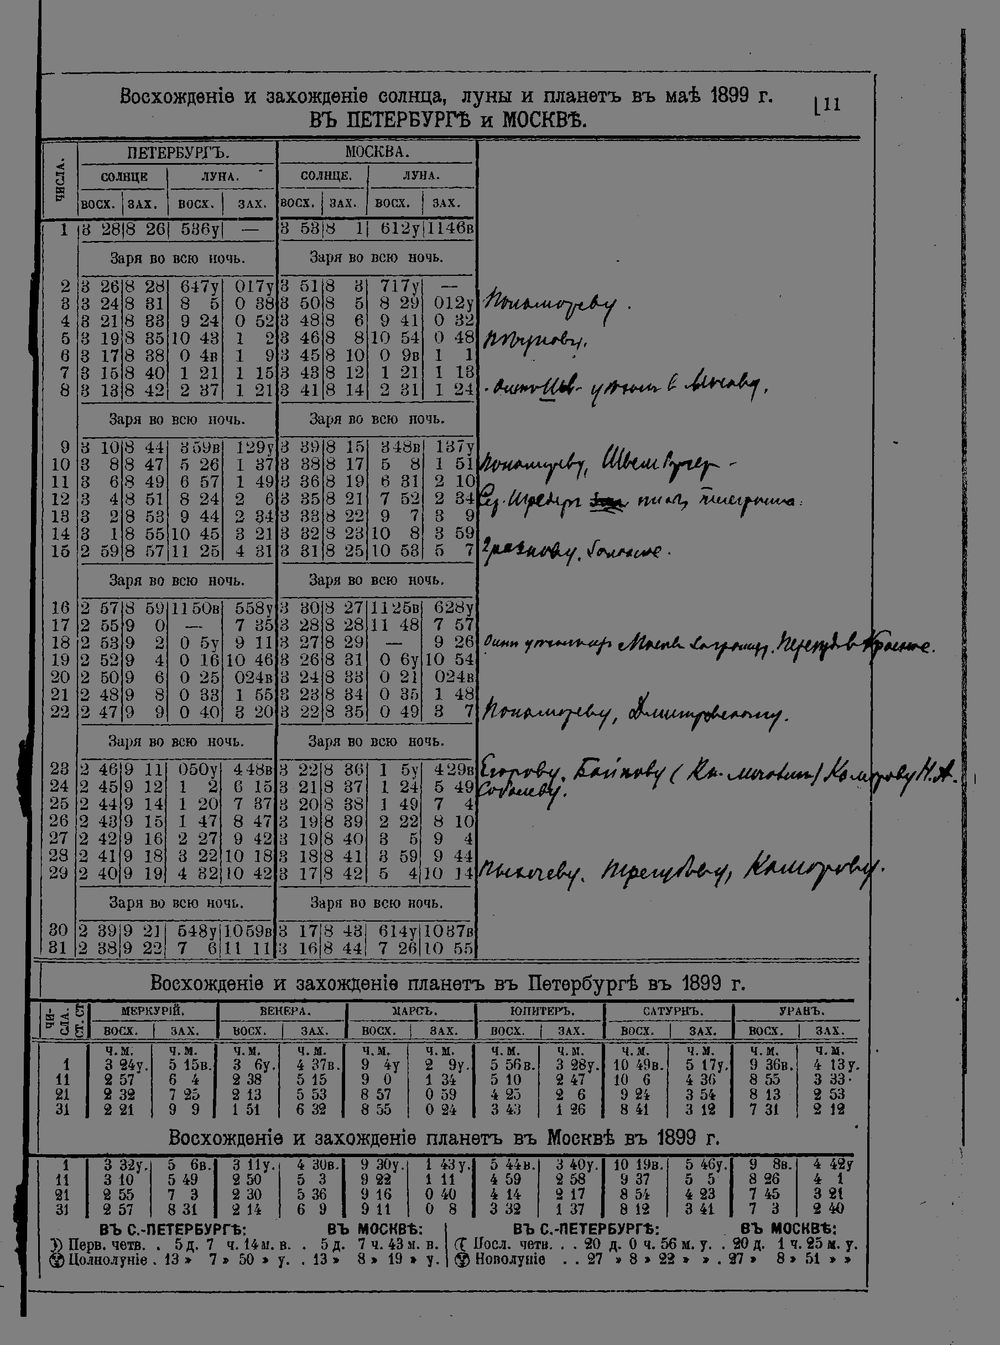 Восхожденіе и захожденіе солнца, луны и планетъ въ маѣ 1899 г.
[11
ВЪ ПЕТЕРБУРГѢ и МОСКВѢ.
ЧИСЛА. ПЕТЕРБУРГЪ. МОСКВА.
СОЛНЦЕ ЛУНА. СОЛНЦЕ. ЛУНА.
ВОСХ. ЗАХ. ВОСХ. ЗАХ. ВОСХ. ЗАХ. ВОСХ. ЗАХ.
1 3 28 8 26 5 36у — 3 53 8 1 6 12у 11 46в
Заря во всю ночь. Заря во всю ночь.
2 3 26 8 28 6 47у 0 17у 3 51 8 3 7 17у —
3 3 24 8 31 8 5 0 38 3 50 8 5 8 29 0 12у Пономореву.
4 3 21 8 33 9 24 0 52 3 48 8 6 9 41 0 32
5 3 19 8 35 10 43 1 2 3 46 8 8 10 54 0 48
6 3 17 8 38 0 4в 1 9 3 45 8 10 0 9в 1 1
7 3 15 8 40 1 21 1 15 3 43 8 12 1 21 1 13
8 3 13 8 42 2 37 1 21 3 41 8 14 2 31 1 24
Заря во всю ночь. Заря во всю ночь.
9 3 10 8 44 3 59в 1 29у 3 39 8 15 3 48в 1 37у
10 3 8 8 47 5 26 1 37 3 38 8 17 5 8 1 51
11 3 6 8 49 6 57 1 49 3 36 8 19 6 31 2 10
12 3 4 8 51 8 24 2 6 3 35 8 21 7 52 2 34
13 3 2 8 53 9 44 2 34 3 33 8 22 9 7 3 9
14 3 1 8 55 10 45 3 21 3 32 8 23 10 8 3 59
15 2 59 8 57 11 25 4 31 3 31 8 25 10 53 5 7
Заря во всю ночь. Заря во всю ночь.
16 2 57 8 59 11 50в 5 58у 3 30 8 27 11 25в 6 28у
17 2 55 9 0 — 7 35 3 28 8 28 11 48 7 57
18 2 53 9 2 0 5у 9 11 3 27 8 29 — 9 26
19 2 52 9 4 0 16 10 46 3 26 8 31 0 6у 10 54
20 2 50 9 6 0 25 0 24в 3 24 8 33 0 21 0 24в
21 2 48 9 8 0 33 1 55 3 23 8 34 0 35 1 48
22 2 47 9 9 0 40 3 20 3 22 8 35 0 49 3 7 Пономореву, Дмитровскому.
Заря во всю ночь. Заря во всю ночь.
23 2 46 9 11 0 50у 4 48в 3 22 8 36 1 5у 4 29в Егорову, Байкову Коморову Н. А.
24 2 45 9 12 1 2 6 15 3 21 8 37 1 24 5 49 Соболеву.
25 2 44 9 14 1 20 7 37 3 20 8 38 1 49 7 4
26 2 43 9 15 1 47 8 47 3 19 8 39 2 22 8 10
27 2 42 9 16 2 27 9 42 3 19 8 40 3 5 9 4
28 2 41 9 18 3 22 10 18 3 18 8 41 3 59 9 44
29 2 40 9 19 4 32 10 42 3 17 8 42 5 4 10 14 Коморову.
Заря во всю ночь. Заря во всю ночь.
30 2 39 9 21 5 48у 10 59в 3 17 8 43 6 14у 10 37в
31 2 38 9 22 7 6 11 11 3 16 8 44 7 26 10 55
Восхожденіе и захожденіе планетъ въ Петербургѣ въ 1899 г.
ЧИСЛА. СТ. СТ МЕРКУРІЙ. ВЕНЕРА. МАРСЪ. ЮПИТЕРЪ. САТУРНЪ. УРАНЪ.
ВОСХ. ЗАХ. ВОСХ. ЗАХ. ВОСХ. ЗАХ. ВОСХ. ЗАХ. ВОСХ. ЗАХ. ВОСХ. ЗАХ.
ч. м. ч. м. ч. м. ч. м. ч. м. ч. м. ч. м. ч. м. ч. м. ч. м. ч. м. ч. м.
1 3 24у. 5 15в. 3 6у. 4 37в. 9 4у 2 9у. 5 56в. 3 28у. 10 49в. 5 17у. 9 36в. 4 13у.
11 2 57 6 4 2 38 5 15 9 0 1 34 5 10 2 47 10 6 4 36 8 55 3 33
21 2 32 7 25 2 13 5 53 8 57 0 59 4 25 2 6 9 24 3 54 8 13 2 53
31 2 21 9 9 1 51 6 32 8 55 0 24 3 43 1 26 8 41 3 12 7 31 2 12
Восхожденіе и захожденіе планетъ въ Москвѣ въ 1899 г.
1 3 32у. 5 6в. 3 11у. 4 30в. 9 30у. 1 43у. 5 44в. 3 40у. 10 19в. 5 46у. 9 8в. 4 42у
11 3 10 5 49 2 50 5 3 9 22 1 11 4 59 2 58 9 37 5 5 8 26 4 1
21 2 55 7 3 2 30 5 36 9 16 0 40 4 14 2 17 8 54 4 23 7 45 3 21
31 2 57 8 31 2 14 6 9 9 11 0 8 3 32 1 37 8 12 3 41 7 3 2 40
ВЪ С.-ПЕТЕРБУРГѢ: ВЪ МОСКВѢ: ВЪ С.-ПЕТЕРБУРГѢ: ВЪ МОСКВѢ:
Перв. четв. . 5 д. 7 ч. 14 м. в. . 5 д. 7 ч. 43 м. в. Посл. четв. . . 20 д. 0 ч. 56 м. у. . 20 д. 1 ч. 25 м. у.
Полнолуніе . 13 » 7 » 50 » у. . 13 » 8 » 19 » у. Новолуніе . . 27 » 8 » 22 » » . 27 » 8 » 51 » »